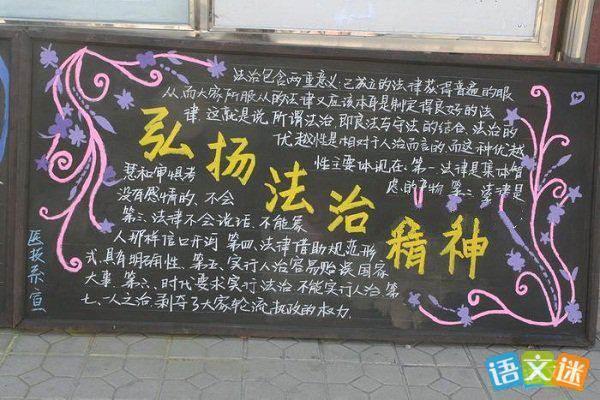 法治包含两重意义:已成立的法律获得普遍的服
从,而大家所服从的法律又应该本身是制定得良好的法
律,这就是说,所谓法治,即良法与守法的结合,法治的
优越性是相对于人治而言的,而这种优越
性主要体现在:第一,法律是集体智
慧和审慎考
虑的产物,第二,法律是
没有感情的,不会
第三、法律不会说话,不能象
人那样信口开河,第四、法律借助规范形
式,具有明确性。第五、实行人治容易贻误国家
大事。第六、时代要求实行法治,不能实行人治,第
七、一人之治,剥夺了大家轮流执政的权力.
弘扬法治精神
宣
语文迷